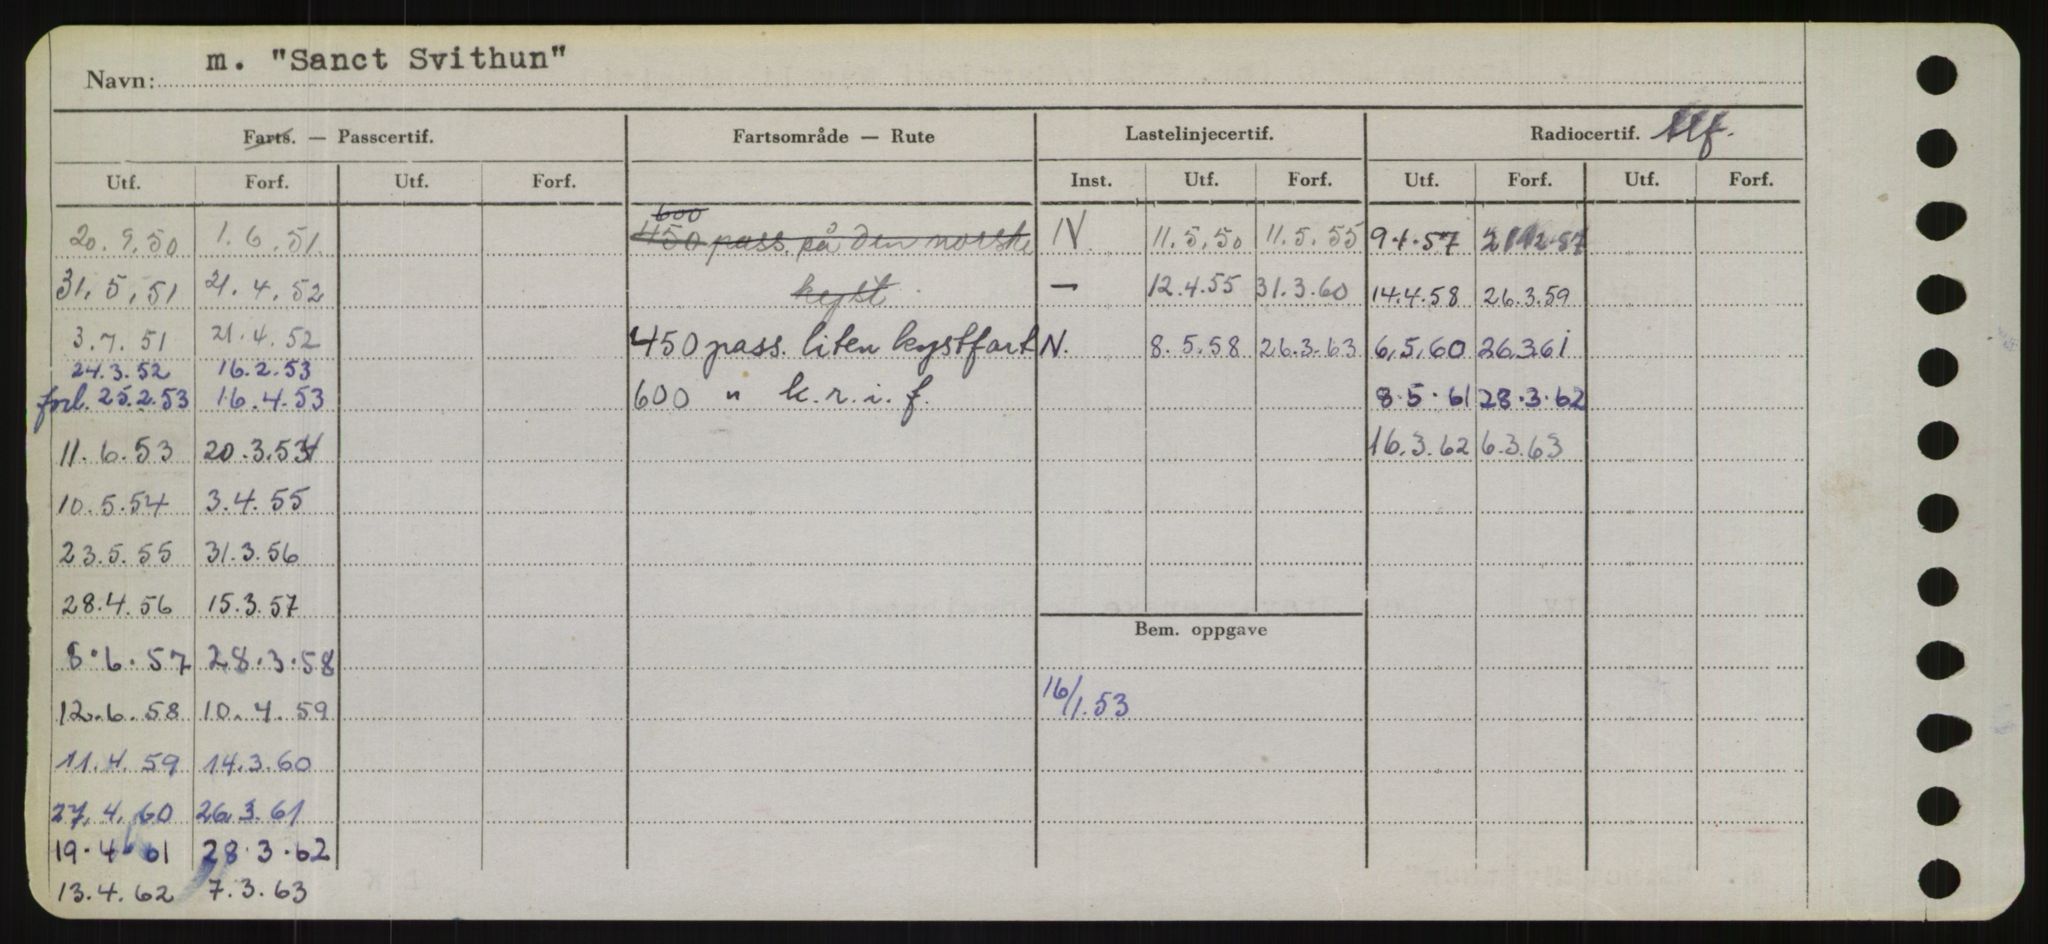 Navn: m. "Sanct Svithun"
Farts. — Passcertif. Fartsområde — Rute Lastelinjecertif. Radiocertif. tlf.
Utf. Forf. Utf. Forf. Inst. Utf. Forf. Utf. Forf. Utf. Forf.
600
20.9.50 1.6.51. 450 pass. på den norske N. 11.5.50 11.5.55 9.4.57
31.5.51 21.4.52 kyst — 12.4.55 31.3.60 14.4.58 26.3.59
3.7.51 21.4.52 450 pass. liten kystfart N. 8.5.58 26.3.63 6.5.60 26.3.61
24.3.52 16.2.53
forl. 25.2.53 16.4.53 600 " k.r.i.f. 8.5.61 28.3.62
11.6.53 20.3.54 16.3.62 6.3.63
10.5.54 3.4.55
23.5.55 31.3.56
28.4.56 15.3.57
Bem. oppgave
8.6.57 28.3.58
12.6.58 10.4.59 16/1.53
11.4.59 14.3.60
27.4.60 26.3.61
19.4.61 28.3.62
13.4.62 7.3.63